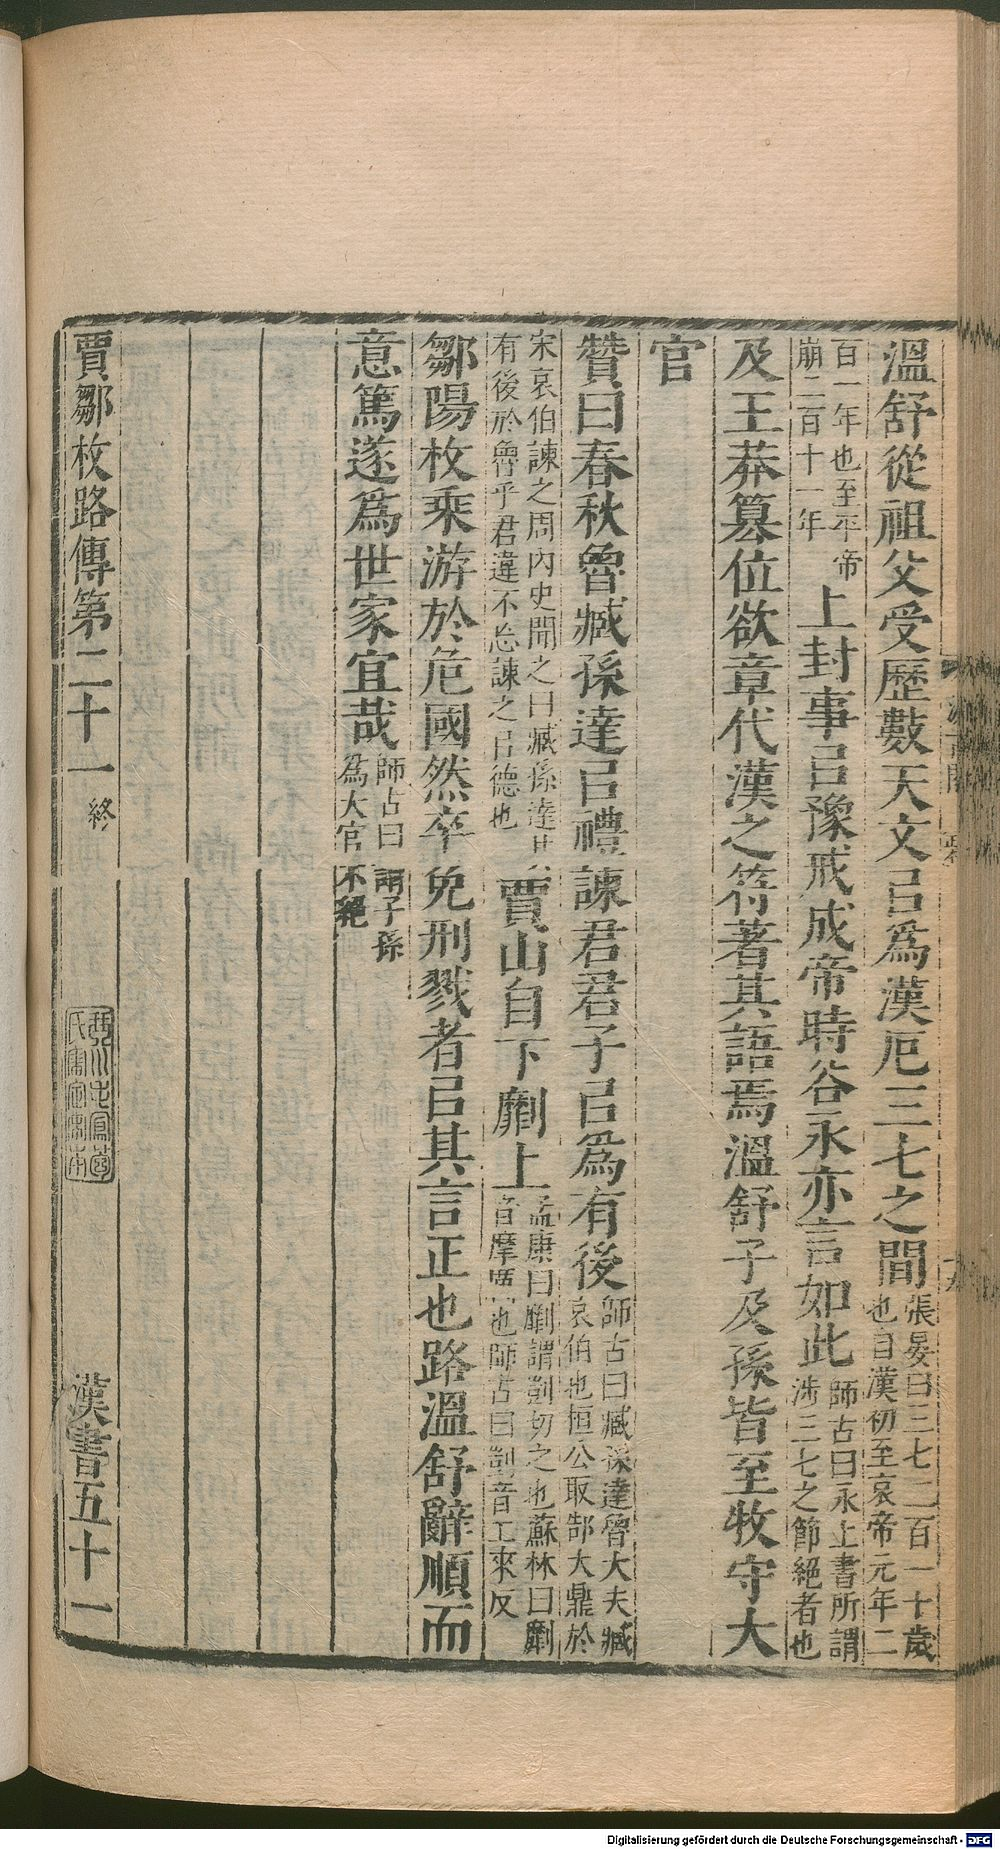 溫舒從祖父受歷數天文㠯爲漢厄三七之間張晏曰三七二百一十歲也自漢初至哀帝元年二
百一年也至平帝崩二百十一年上封事㠯豫戒成帝時谷永亦言如此師古曰永上書所謂涉三七之節絕者也
及王莽篡位欲章代漢之符著其語焉溫舒子及孫皆至牧守大
官
贊曰春秋魯臧孫達㠯禮諫君君子㠯爲有後師古曰臧孫達魯大夫臧哀伯也桓公取郜大鼎於
宋哀伯諫之周內史聞之曰臧孫達其有後於魯乎君違不忘諫之㠯德也賈山自下劘上孟康曰劘謂剴切之也蘇林曰劘音摩厲也師古曰剴音工來反
鄒陽枚乘游於危國然卒免刑戮者㠯其言正也路溫舒辭順而
意篤遂爲世家宜哉師古曰謂子孫爲大官不絕
賈鄒枚路傳第二十一 終 漢書五十一
Digitalisierung gefördert durch die Deutsche Forschungsgemeinschaft - DFG